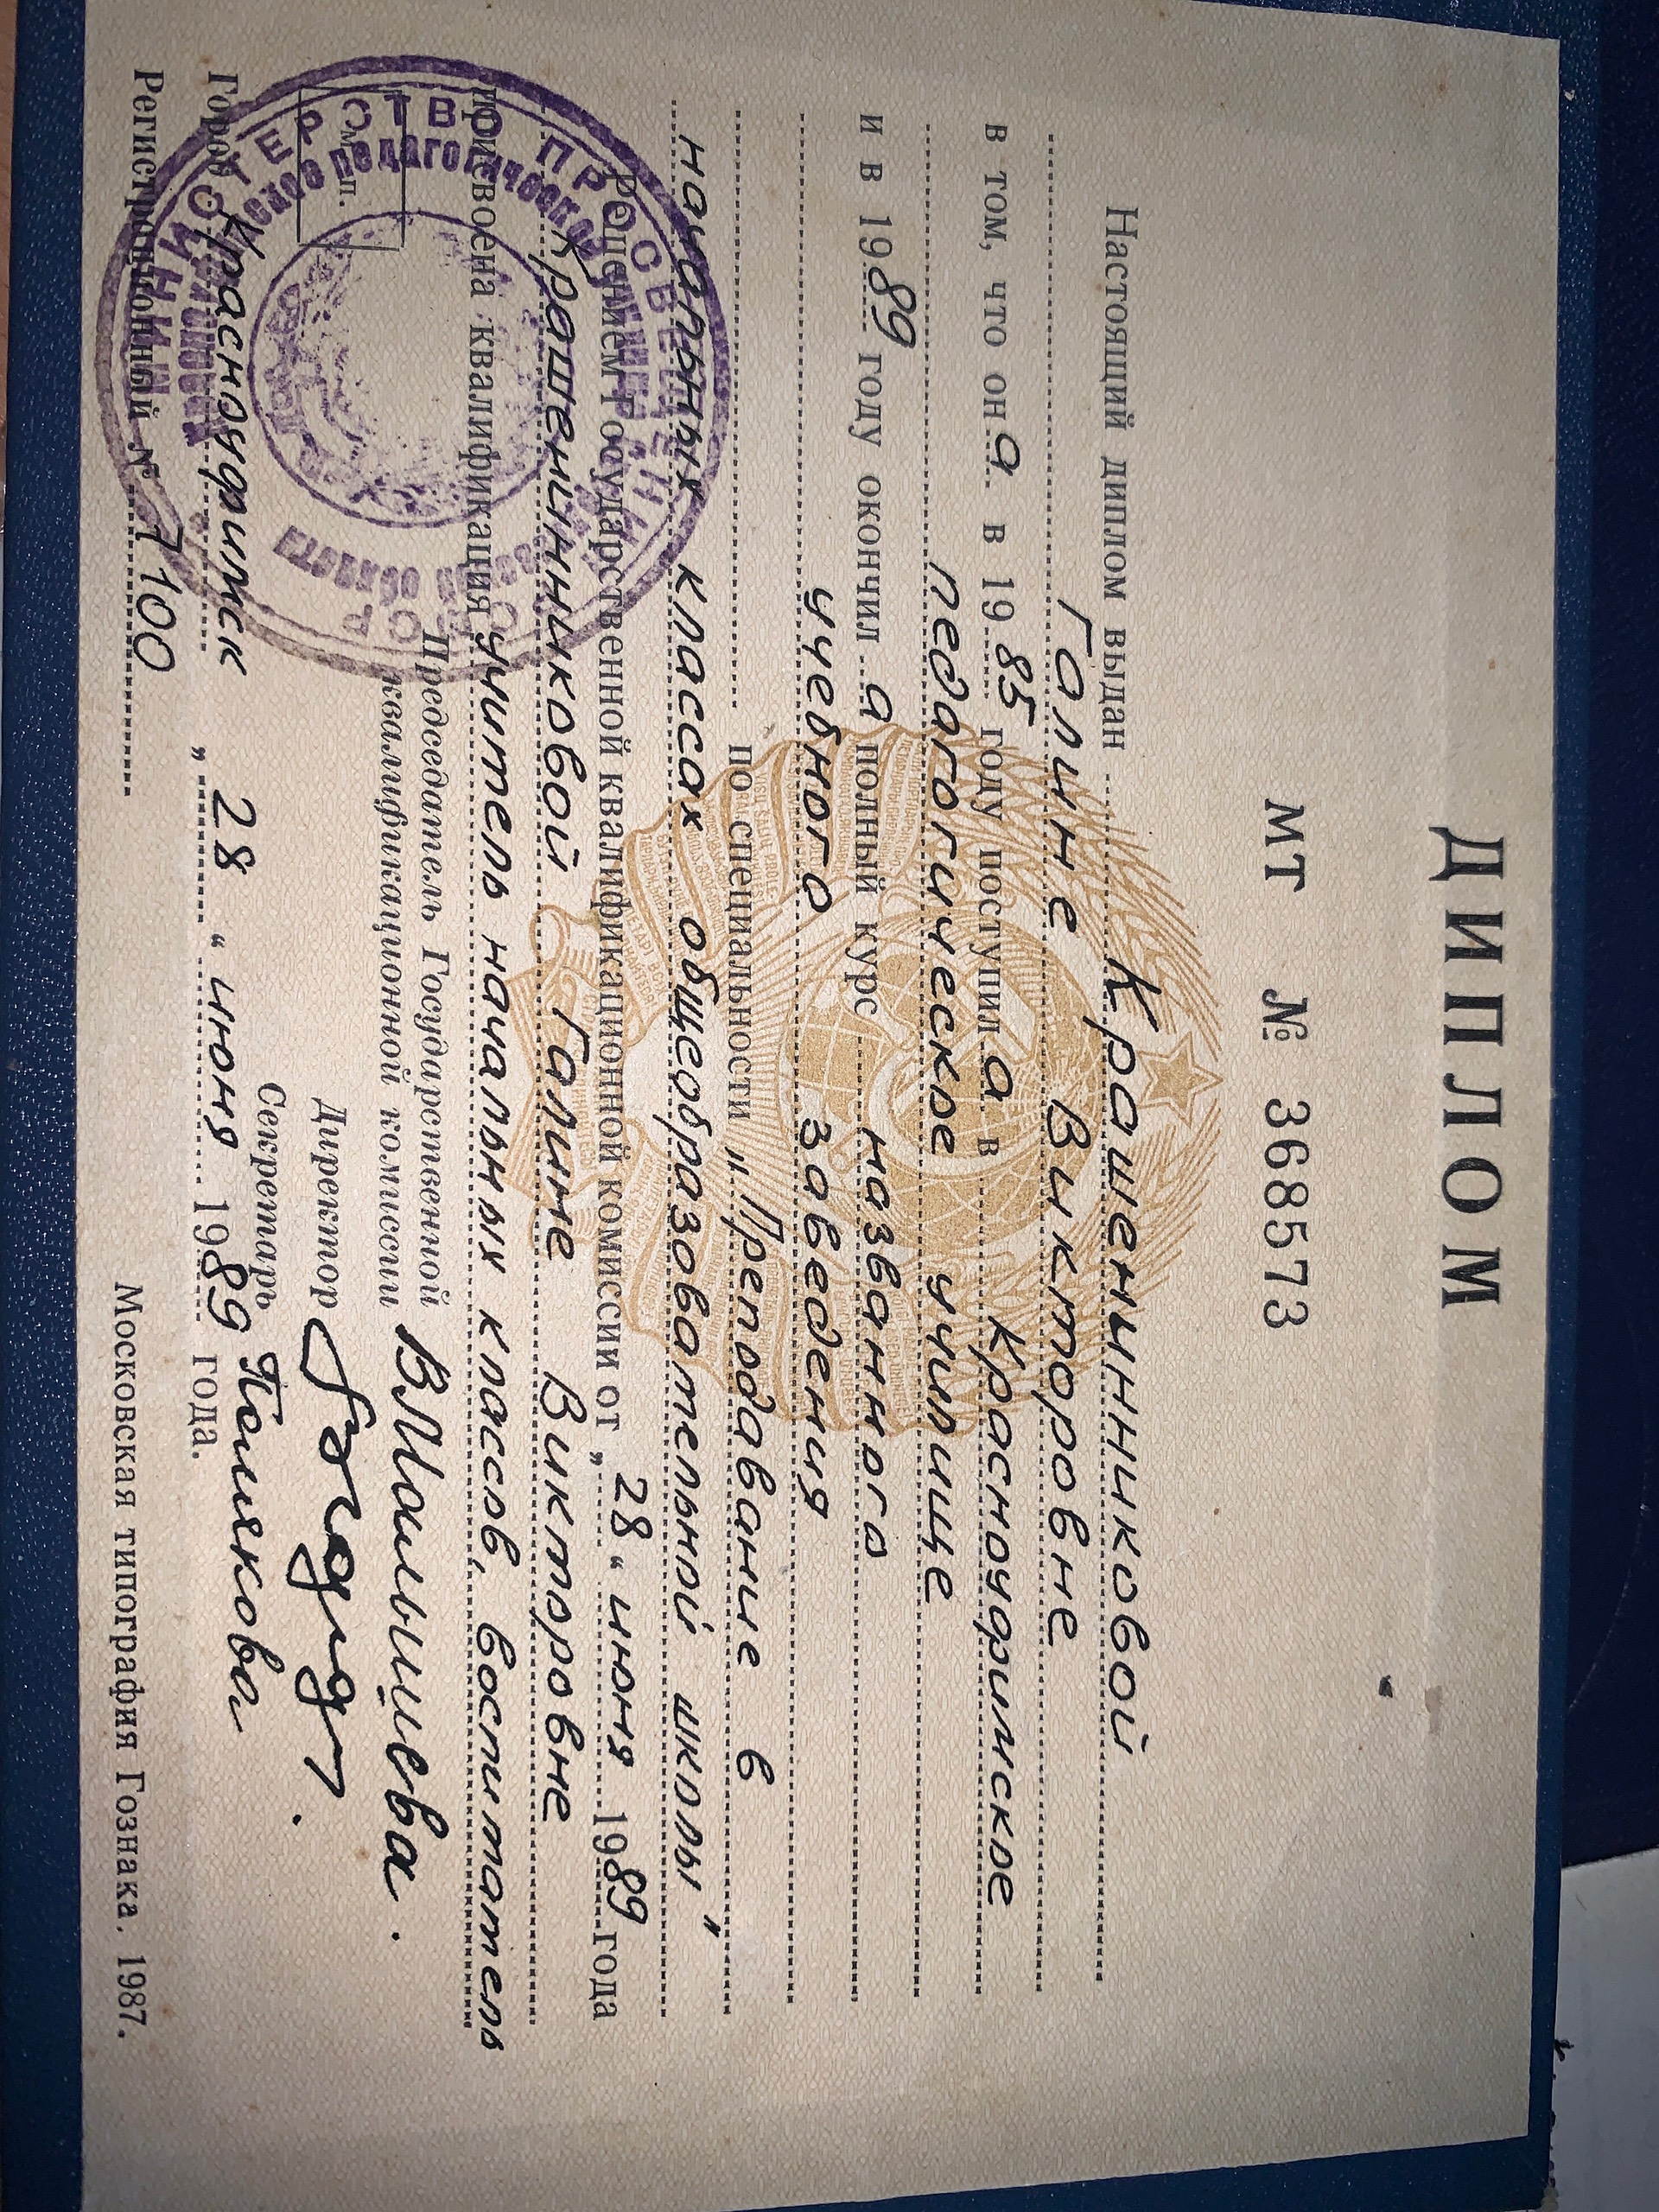 ДИПЛОМ
МТ № 368573
Настоящий диплом выдан Крашенинниковой
Галине Викторовне
в том, что она в 1985 году поступила в Красноуфимское
педагогическое училище
и в 1989 году окончила полный курс названного
учебного заведения
по специальности „Преподавание в
начальных классах общеобразовательной школы"
Решением Государственной квалификационной комиссии от „28" июня 1989 года
Крашенинниковой Галине Викторовне
присвоена квалификация учитель начальных классов, воспитатель
Председатель Государственной
квалификационной комиссии
Директор
Секретарь
М. п.
Город Красноуфимск „28" июня 1989 года.
Регистрационный № 7100
Московская типография Гознака. 1987.
МИНИСТЕРСТВО ПРОСВЕЩЕНИЯ
области